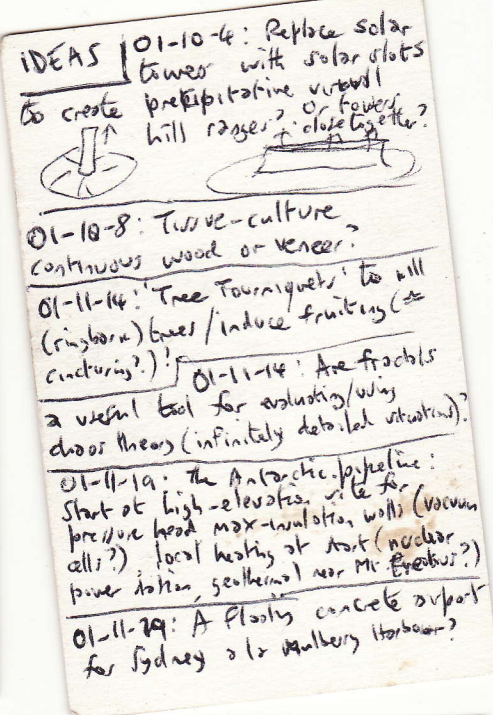 IDEAS
01-10-4: Replace solar
tower with solar slots
to create precipitative virtual
hill ranges? Or towers
close together?
01-10-8: Tissue-culture
continuous wood or veneer?
01-11-14: 'Tree Tourniquets' to kill
(ringbark) trees / induce fruiting (≈
cincturing?)!
01-11-14: Are fractals
a useful tool for evaluating/using
chaos theory (infinitely detailed situations)?
01-11-19: The Antarctic pipeline:
Start at high-elevation site for
pressure head max-insulation walls (vacuum
cells?) local heating at start (nuclear
power station, geothermal near Mt. Erebus?)
01-11-29: A floating concrete airport
for Sydney a la Mulberry Harbour?